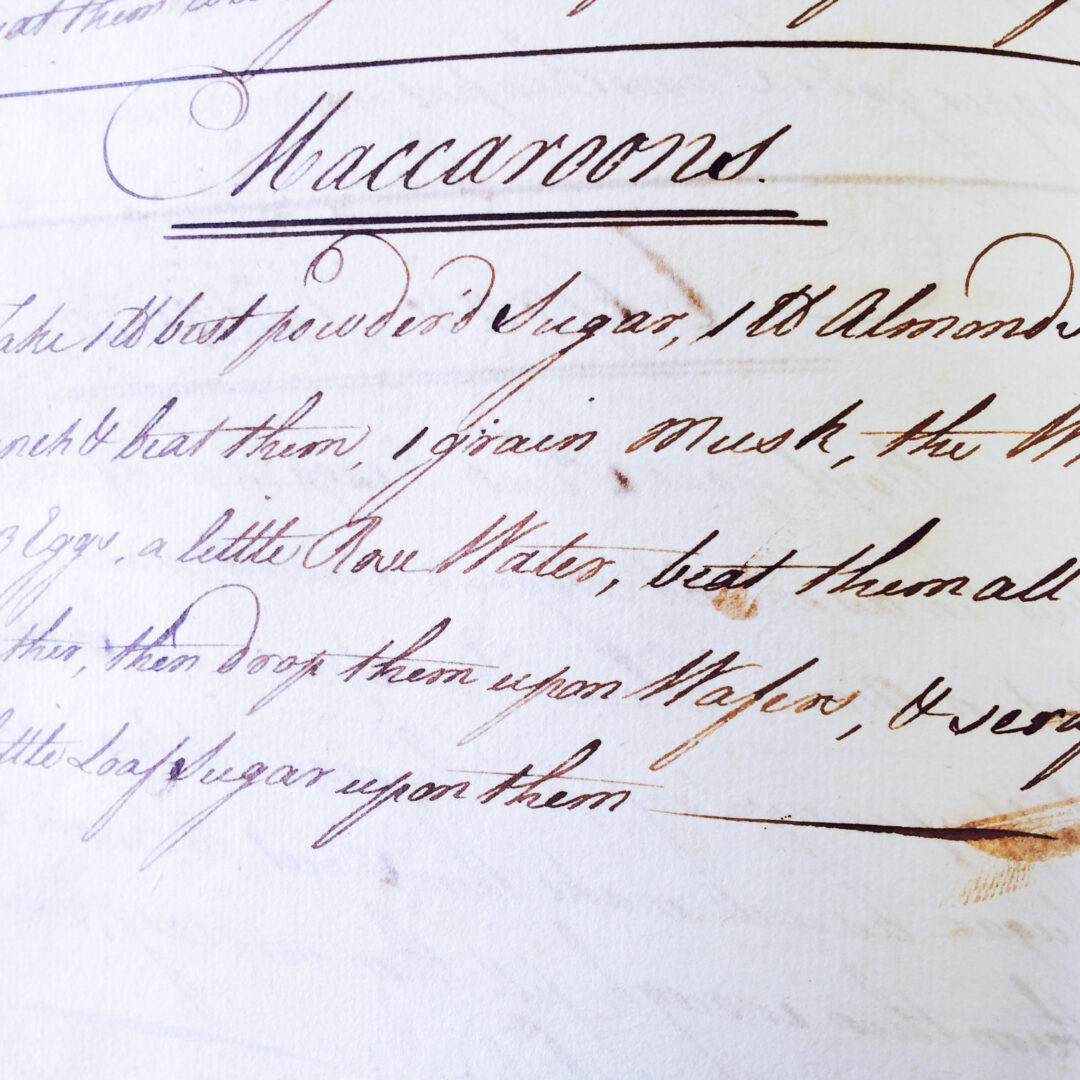 eat them
Maccaroons.
Take 1 lb best powder'd Sugar, 1 lb Almonds
nch & beat them, 1 grain Musk, the W
3 Eggs, a little Rose Water, beat them all
ther, then drop them upon Wafers, & serap
ittle Loaf Sugar upon them